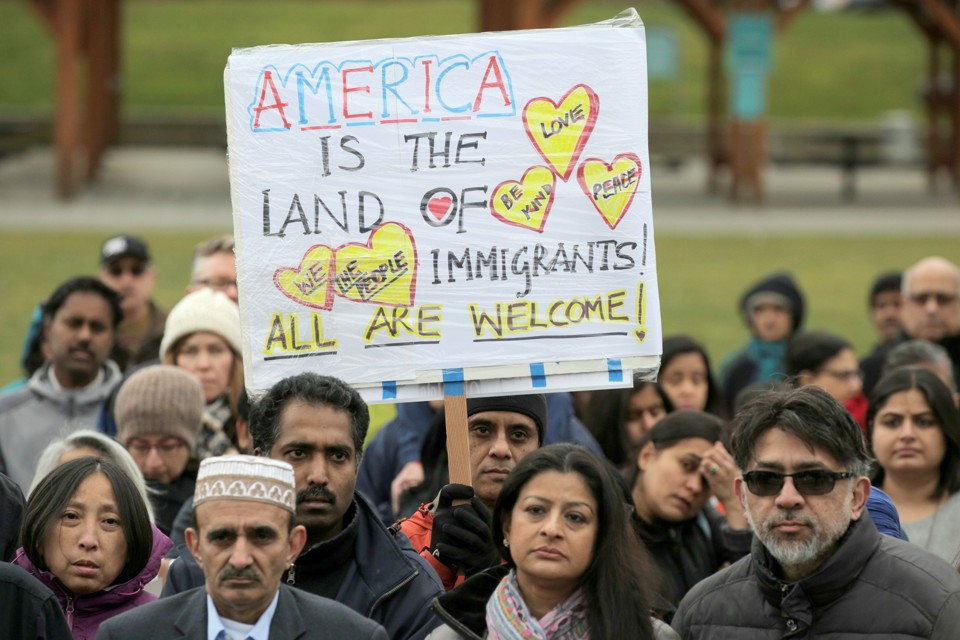 AMERICA
IS THE
LOVE
LAND OF
BE KIND
PEACE
WE THE PEOPLE
IMMIGRANTS!
ALL ARE WELCOME!